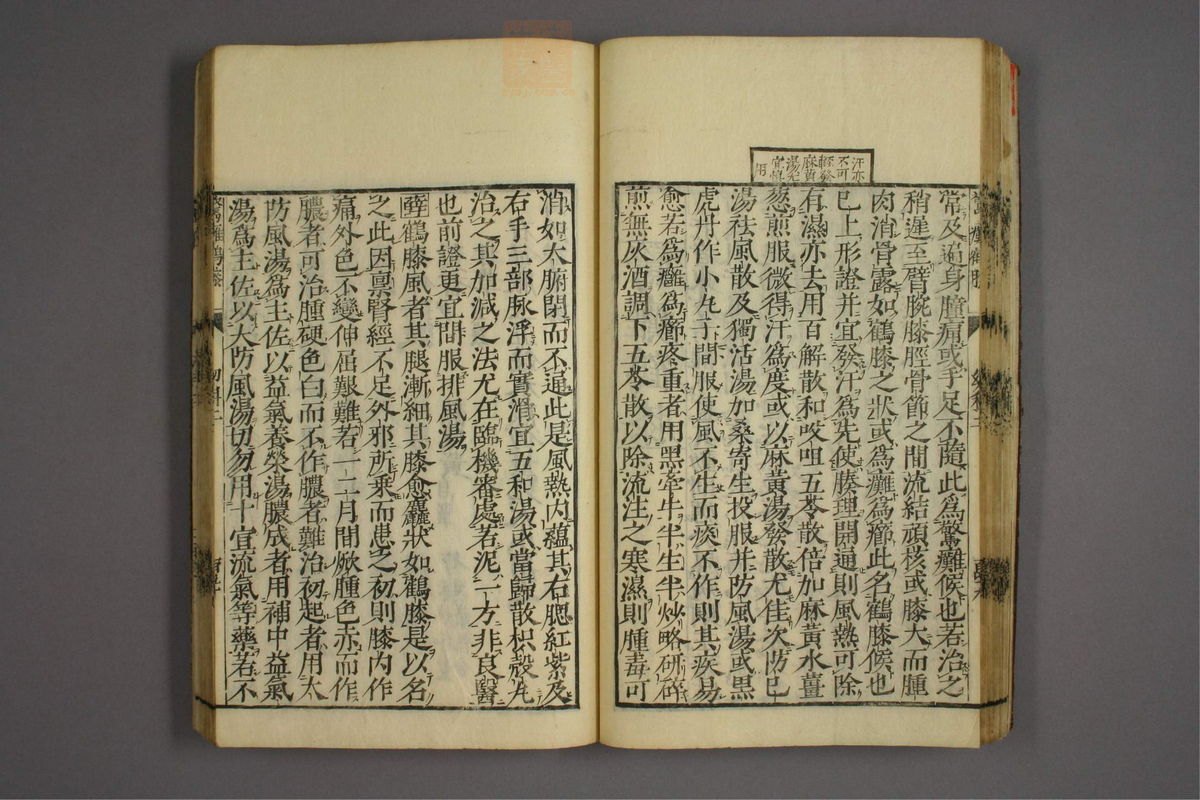 汗亦
不可
輕發
麻黄
湯尤
宜愼
用
常及遍身腫痛或手足不隨此爲驚癱候也若治之
稍遲至臂腕膝脛骨節之間流結頑核或膝大而腫
肉消骨露如鶴膝之狀或爲癱爲癤此名鶴膝候也
已上形證并宜發汗爲先使腠理開通則風熱可除
有濕亦去用百解散和㕮咀五苓散倍加麻黄水薑
葱煎服微得汗爲度或以麻黄湯發散尤佳次防已
湯祛風散及獨活湯加桑寄生投服并防風湯或黒
虎丹作小丸子間服使風不生而痰不作則其疾易
愈若爲癰爲癤疼重者用黒牽牛半生半炒略研碎
煎無灰酒調下五苓散以除流注之寒濕則腫毒可
消如大腑閉而不通此是風熱内蘊其右腮紅紫及
右手三部脉浮而實滑宜五和湯或當歸散枳殼丸
治之其加減之法尤在臨機審處若泥一方非良醫
也前證更宜間服排風湯
薛鶴膝風者其腿漸細其膝愈麤狀如鶴膝是以名
之此因禀腎經不足外邪所乘而患之初則膝内作
痛外色不變伸屈艱難若一二月間焮腫色赤而作
膿者可治腫硬色白而不作膿者難治初起者用大
防風湯爲主佐以益氣養榮湯膿成者用補中益氣
湯爲主佐以大防風湯切勿用十宣流氣等藥若不
幼科二